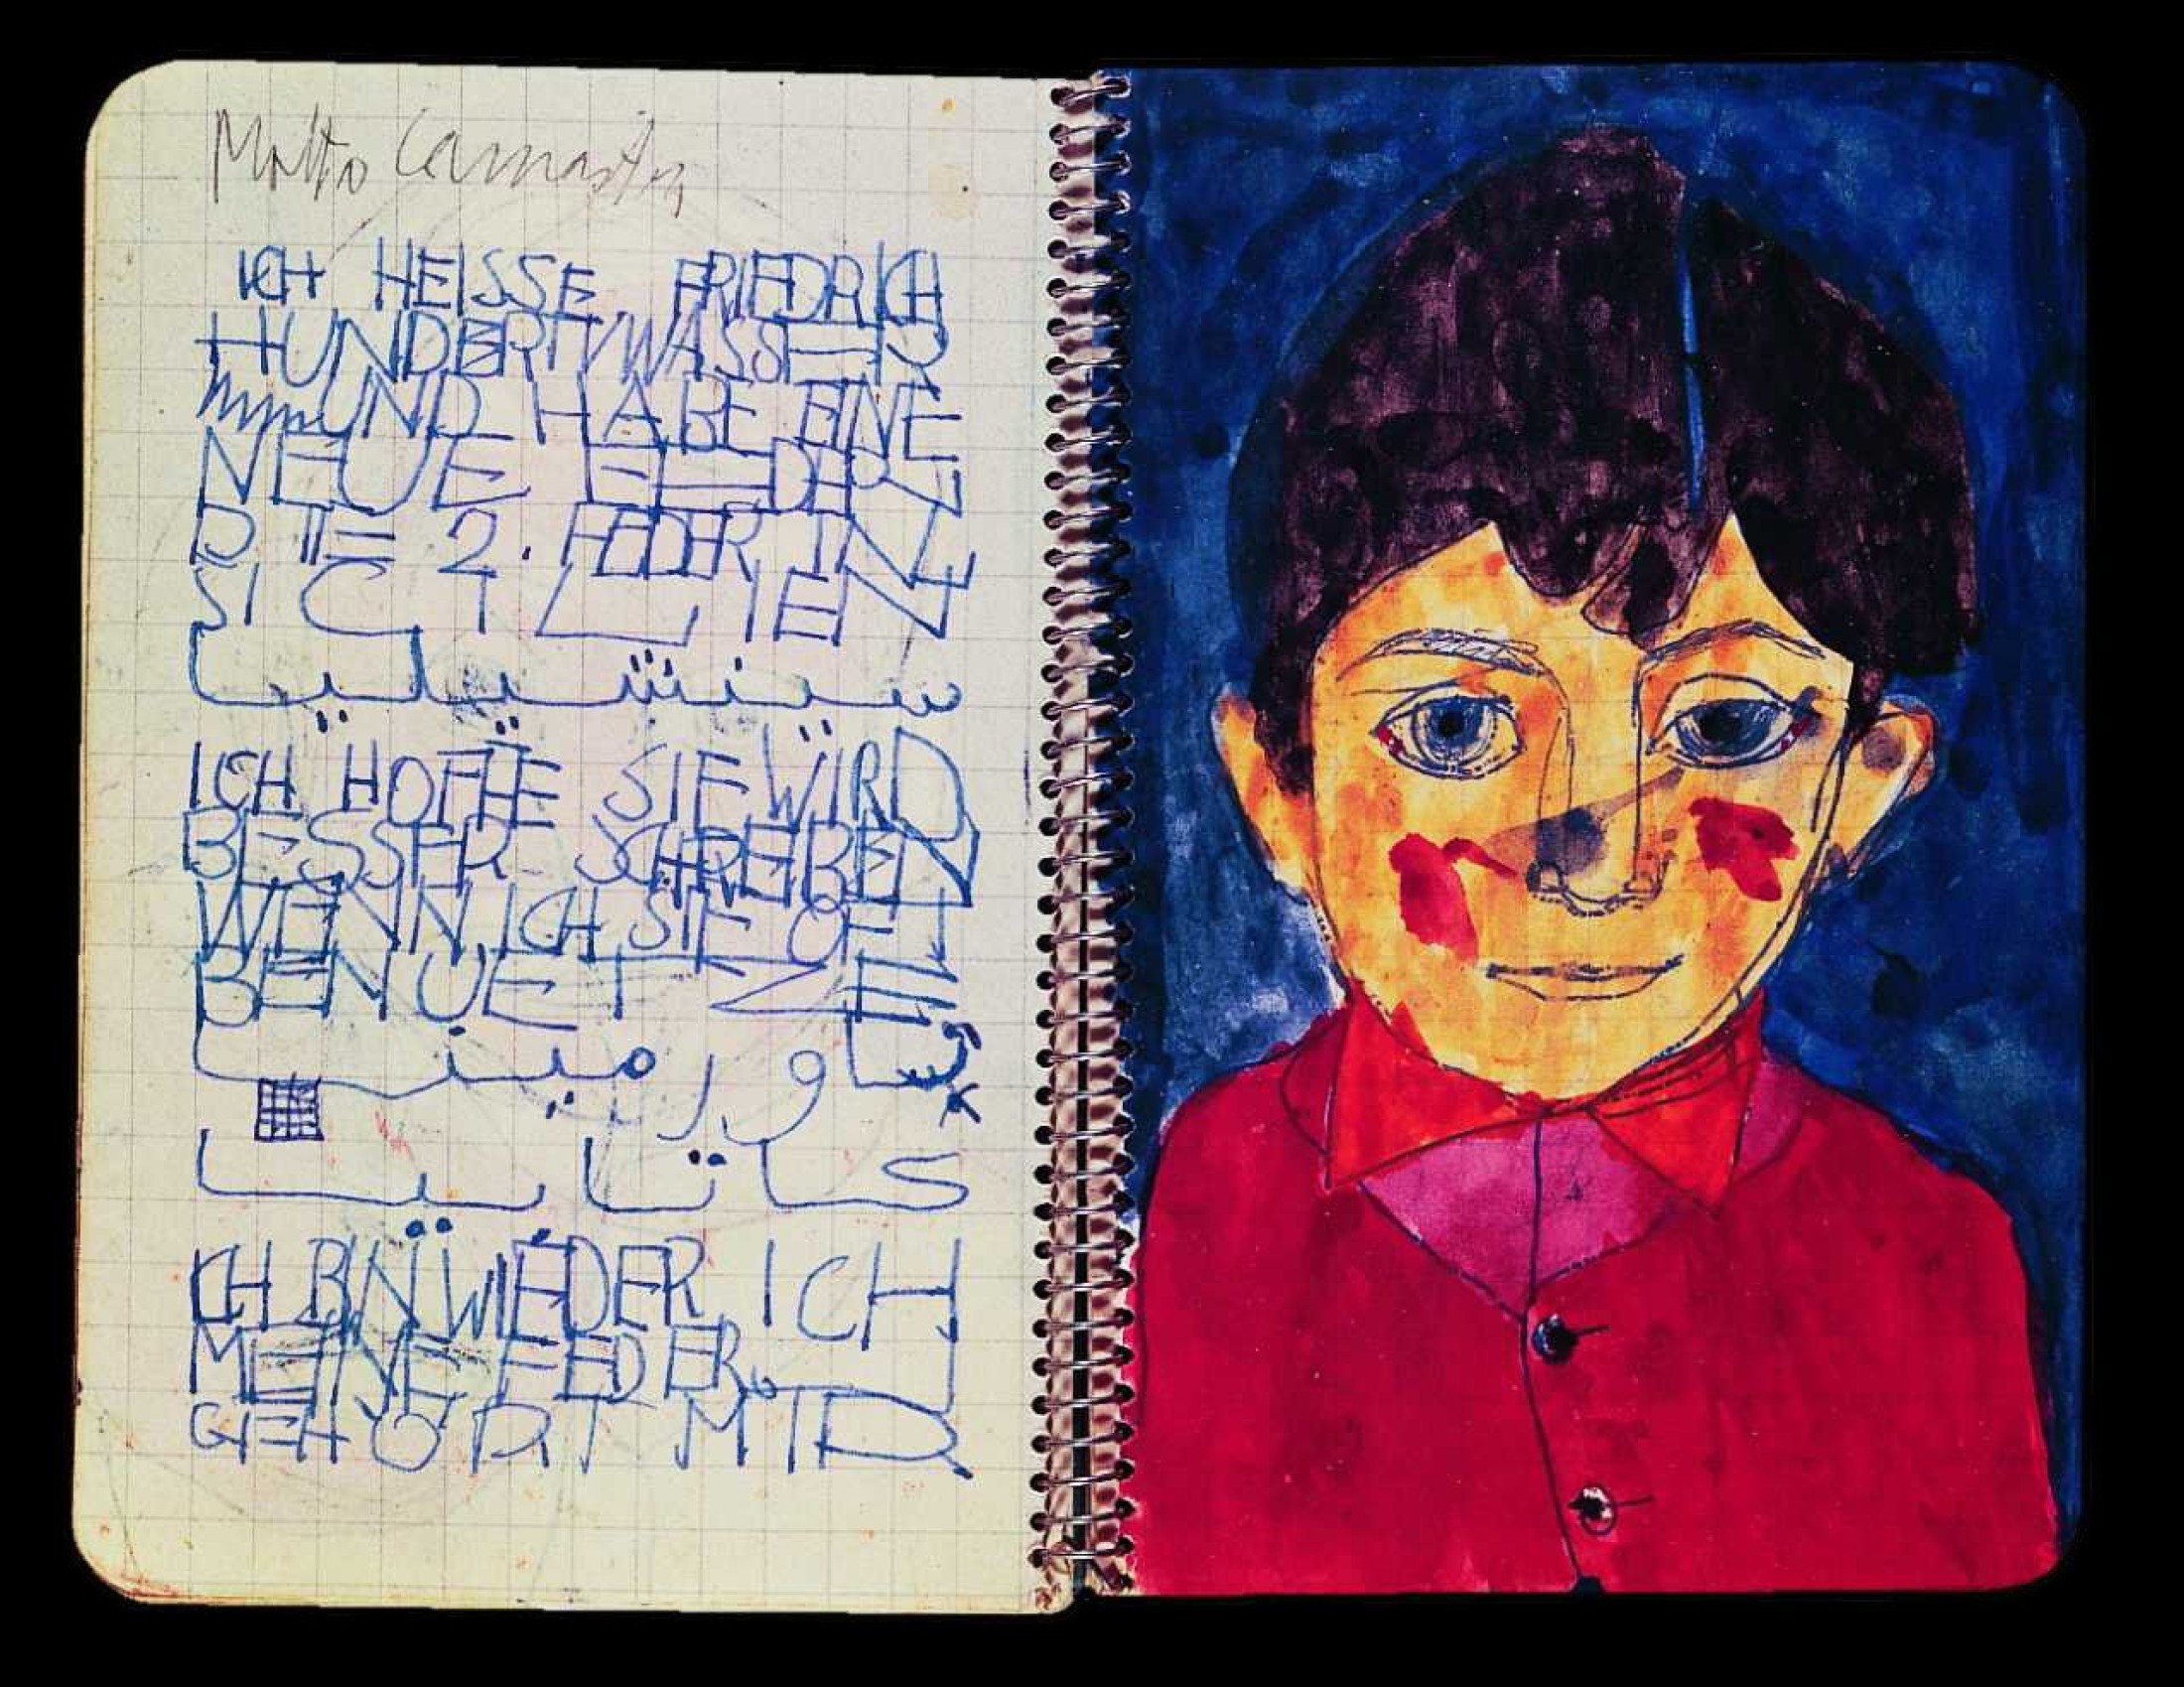 ICH HEISSE FRIEDRICH
HUNDERTWASSER
UND HABE EINE
NEUE FEDER
DIE 2. FEDER IN
SICILIEN
سينشيليا
ICH HOFFE SIE WIRD
BESSER SCHREIBEN
WENN ICH SIE OFT
BENUETZE
كاتانيا
ICH BIN WIEDER ICH
MEINE FEDER
GEHÖRT MIR